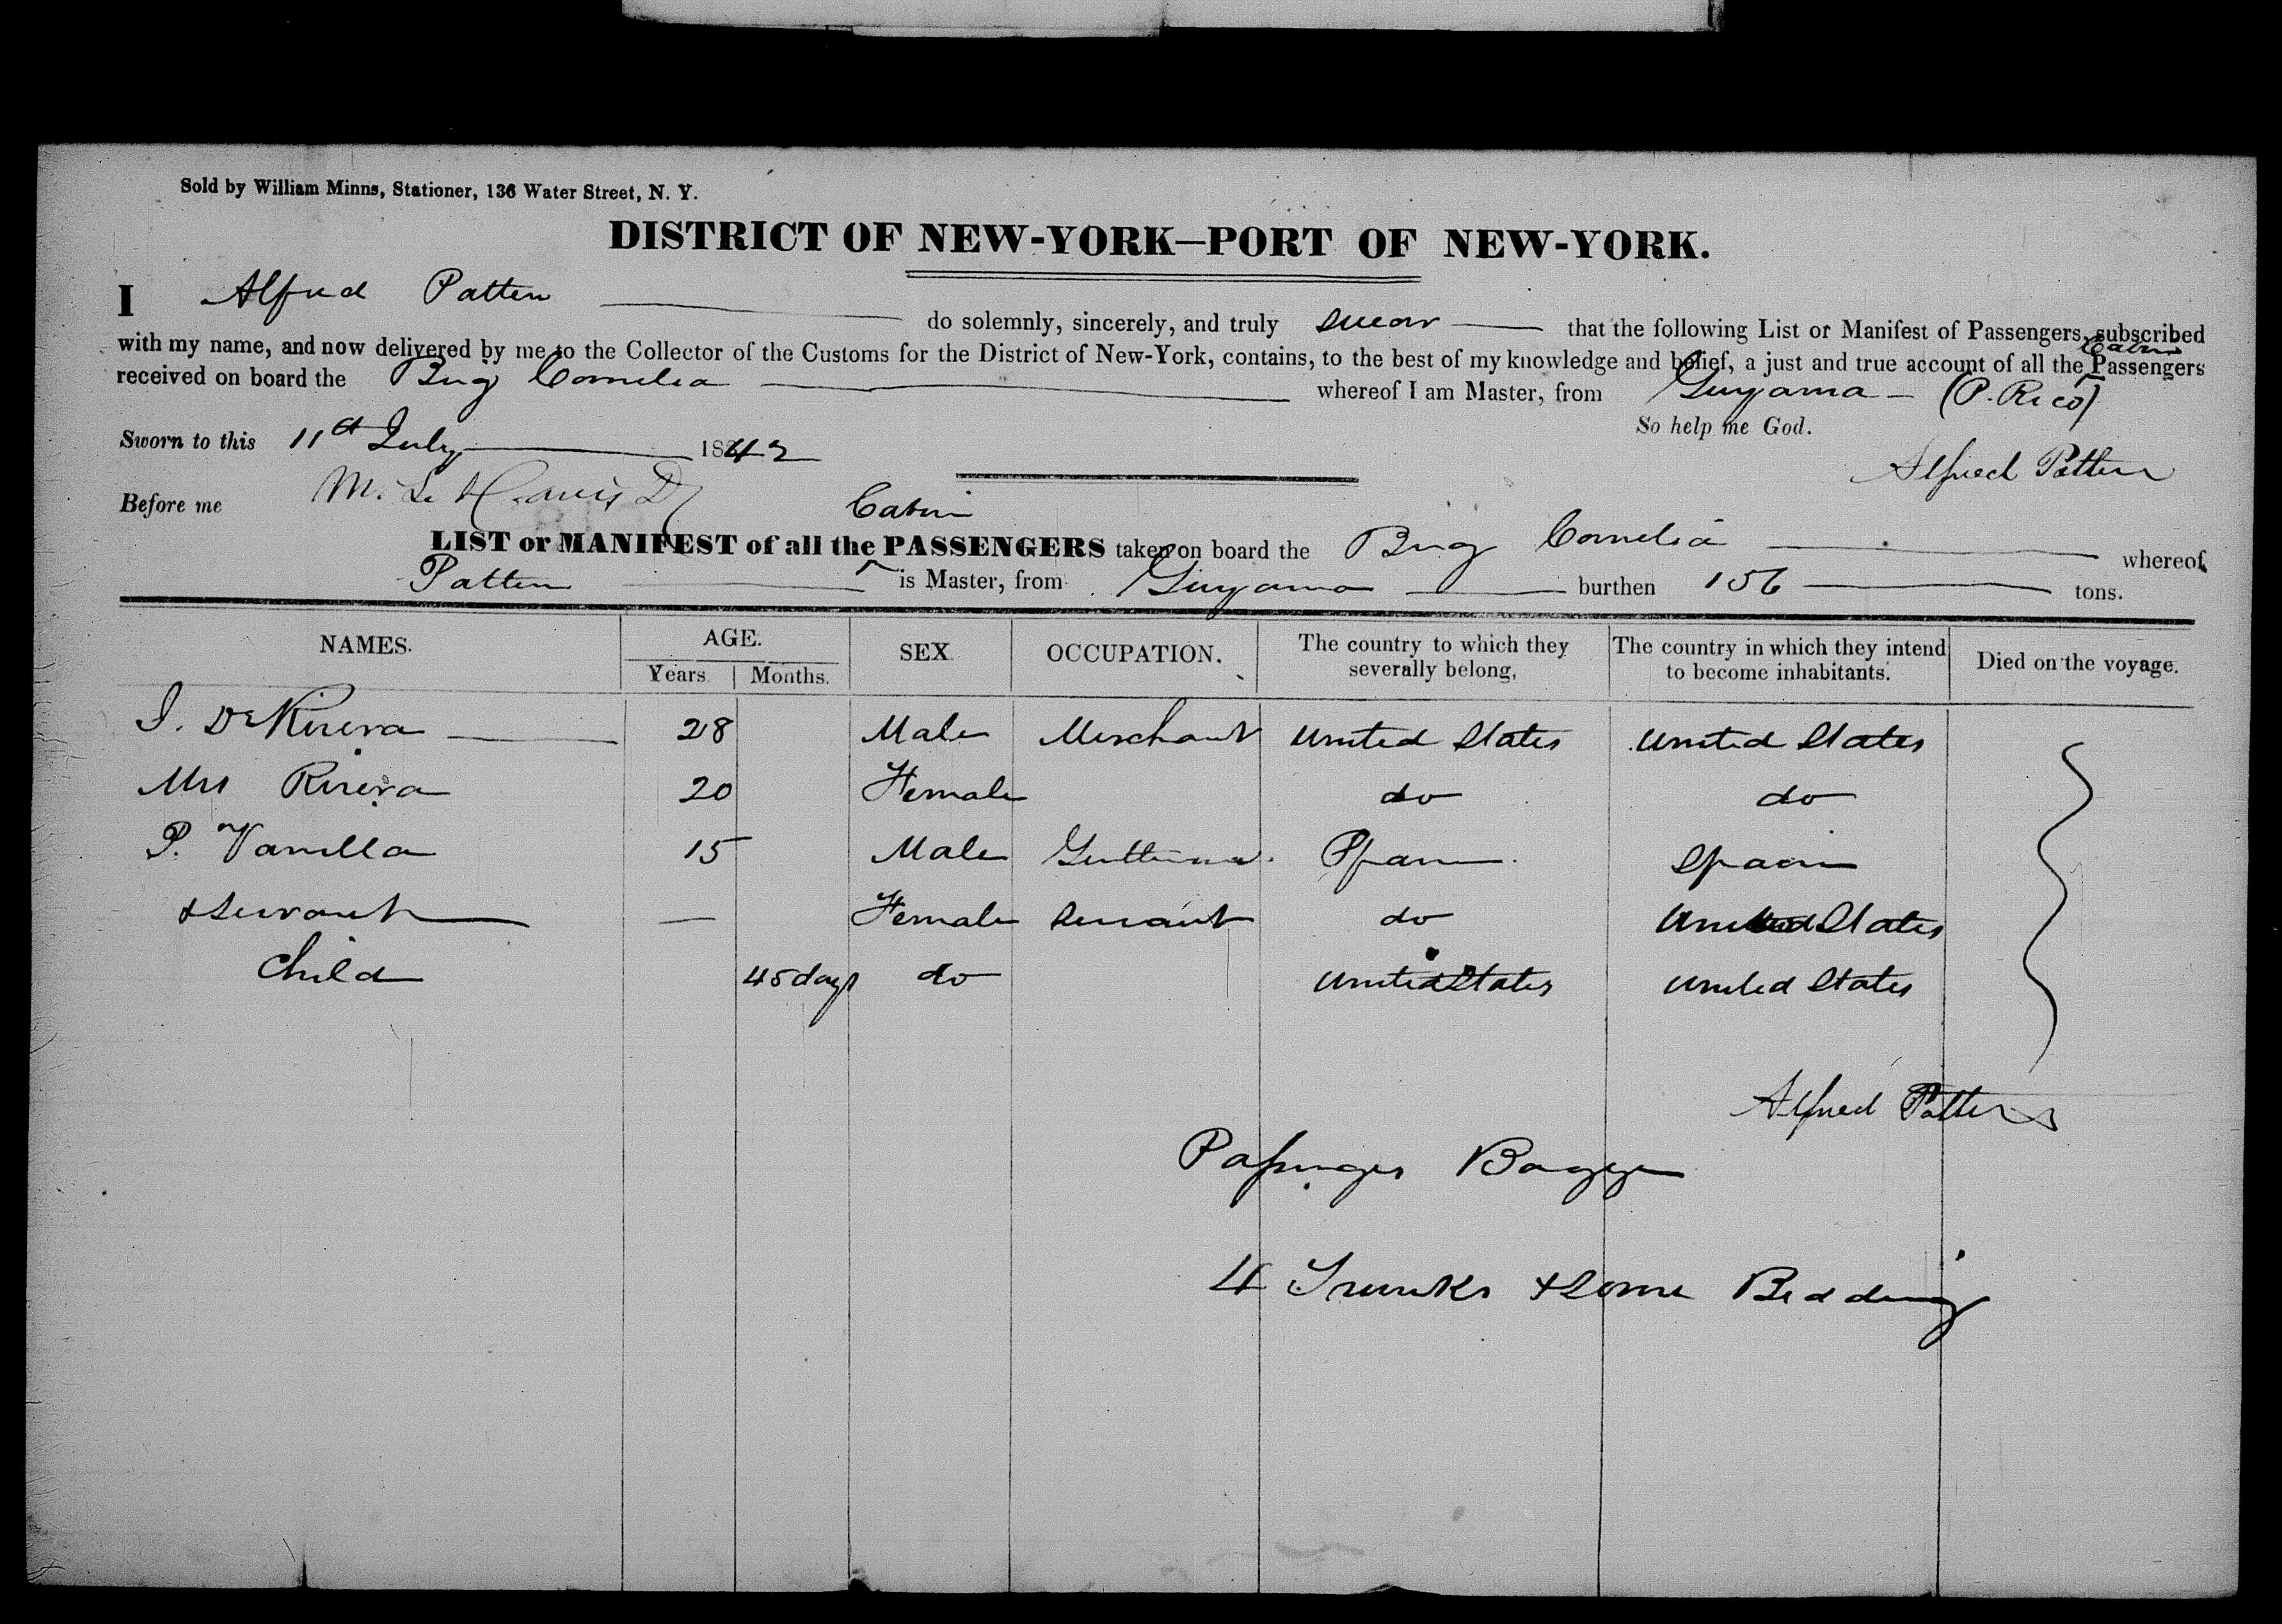 Sold by William Minns, Stationer, 136 Water Street, N. Y.
DISTRICT OF NEW-YORK—PORT OF NEW-YORK.
I Alfred Patten do solemnly, sincerely, and truly swear that the following List or Manifest of Passengers, subscribed
with my name, and now delivered by me to the Collector of the Customs for the District of New-York, contains, to the best of my knowledge and belief, a just and true account of all the Cabin Passengers
received on board the Brig Cornelia whereof I am Master, from Guyama (P. Rico)
So help me God.
Sworn to this 11th July 1842
Alfred Patten
Before me
Cabin
LIST or MANIFEST of all the PASSENGERS taken on board the Brig Cornelia whereof
Patten is Master, from Guyama burthen 156 tons.
NAMES. AGE. SEX. OCCUPATION. The country to which they severally belong, The country in which they intend to become inhabitants. Died on the voyage.
Years. Months.
I. De Rivera 28 Male Merchant United States United States
Mrs Rivera 20 Female do do
P. Vanella 15 Male Gentleman Spain Spain
&Servant — Female Servant do United States
Child 45 days do United States United States
Alfred Patten
Passenges Bagge
4 Trunks & Some Bedding